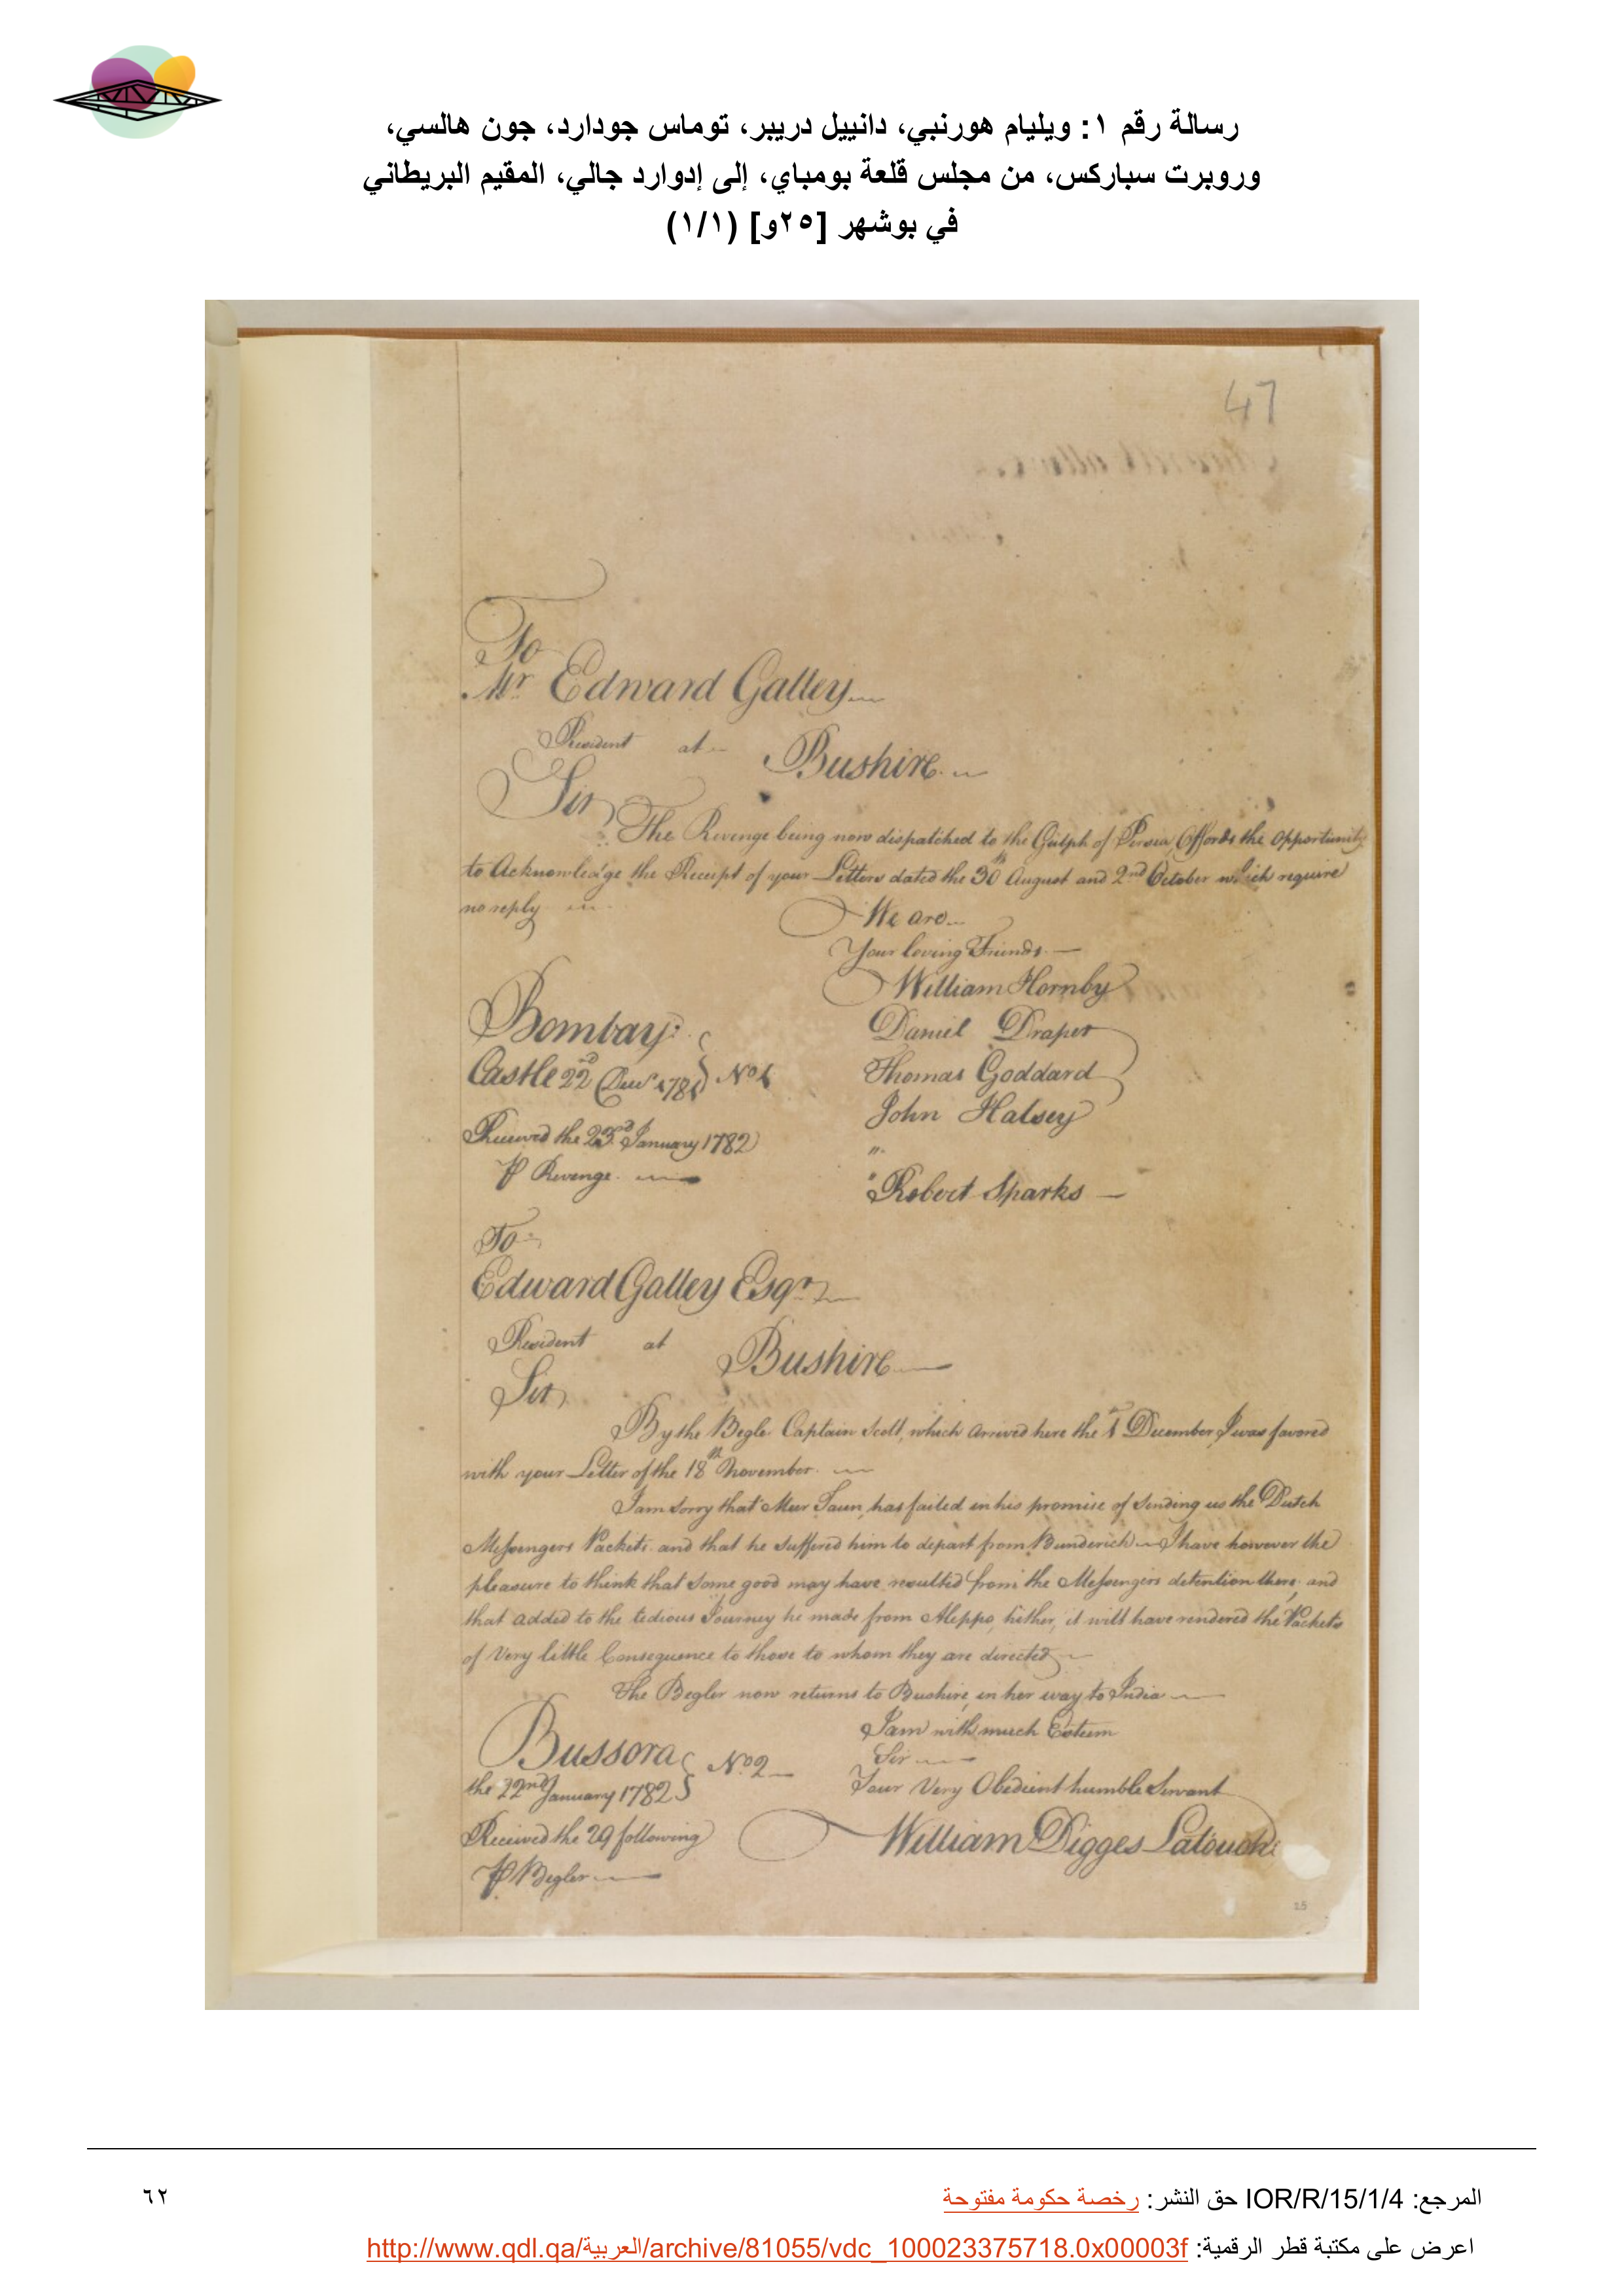 رسالة رقم ١: ويليام هورنبي، دانييل دريبر، توماس جودارد، جون هالسي،
وروبرت سباركس، من مجلس قلعة بومباي، إلى إدوارد جالي، المقيم البريطاني
في بوشهر [٢٥و] (١/١)
47
To
Mr. Edward Galley
Resident at
Bushire
Sir
The Revenge being now dispatched to the Gulph of Persia Affords the Opportunity
to Acknowledge the Receipt of your Letters dated the 30th August and 2nd October which require
no reply
We are
Your loving Friends
William Hornby
Daniel Draper
Thomas Goddard
John Halsey
"
" Robert Sparks
Bombay
Castle 22d Decr 1781 No 1
Received the 23d January 1782
P Revenge
To
Edward Galley Esqr
Resident at
Bushire
Sir
By the Begler Captain Scott, which arrived here the 1st December I was favored
with your Letter of the 18th November
I am sorry that Meer has failed in his promise of sending us the Dutch
Messengers Packets and that he suffered him to depart from Bunderich I have however the
pleasure to think that some good may have resulted from the Messengers detention there, and
that added to the tedious Journey he made from Aleppo, hither, it will have rendered the Packets
of Very little Consequence to those to whom they are directed
The Begler now returns to Bushire, in her way to India
I am with much Esteem
Sir
Your Very Obedient humble Servant
William Digges Latouche
Bussora No. 2
the 22nd January 1782
Received the 29 following
P Begler
25
المرجع: IOR/R/15/1/4 حق النشر: رخصة حكومة مفتوحة
٦٢
اعرض على مكتبة قطر الرقمية: http://www.qdl.qa/العربية/archive/81055/vdc_100023375718.0x00003f